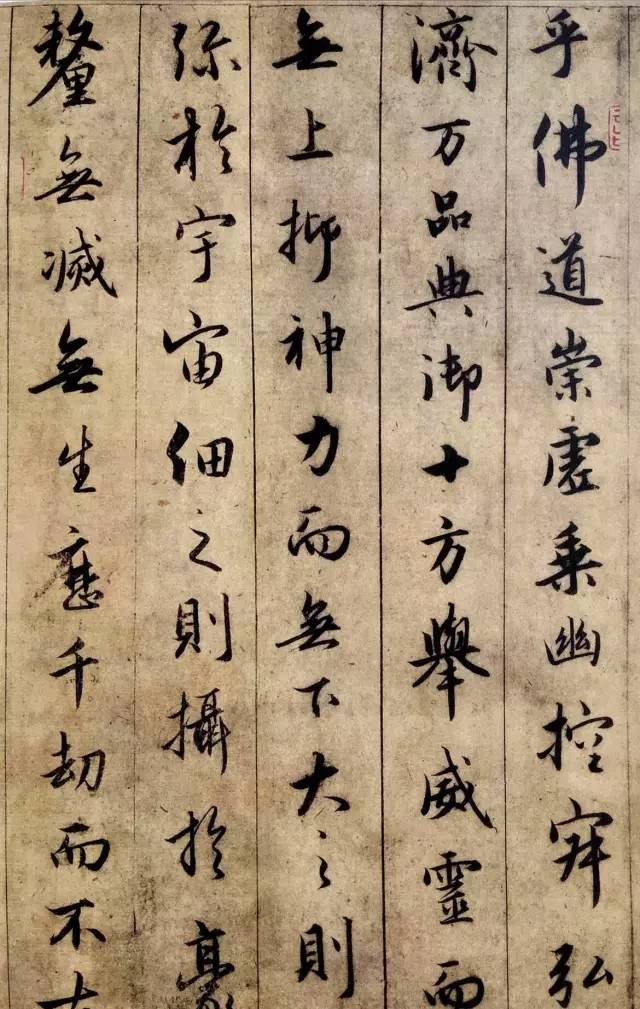 乎佛道崇虚乗幽控寂弘
濟万品典御十方舉威靈而
無上抑神力而無下大之則
弥於宇宙細之則攝於毫
釐無滅無生應千劫而不古